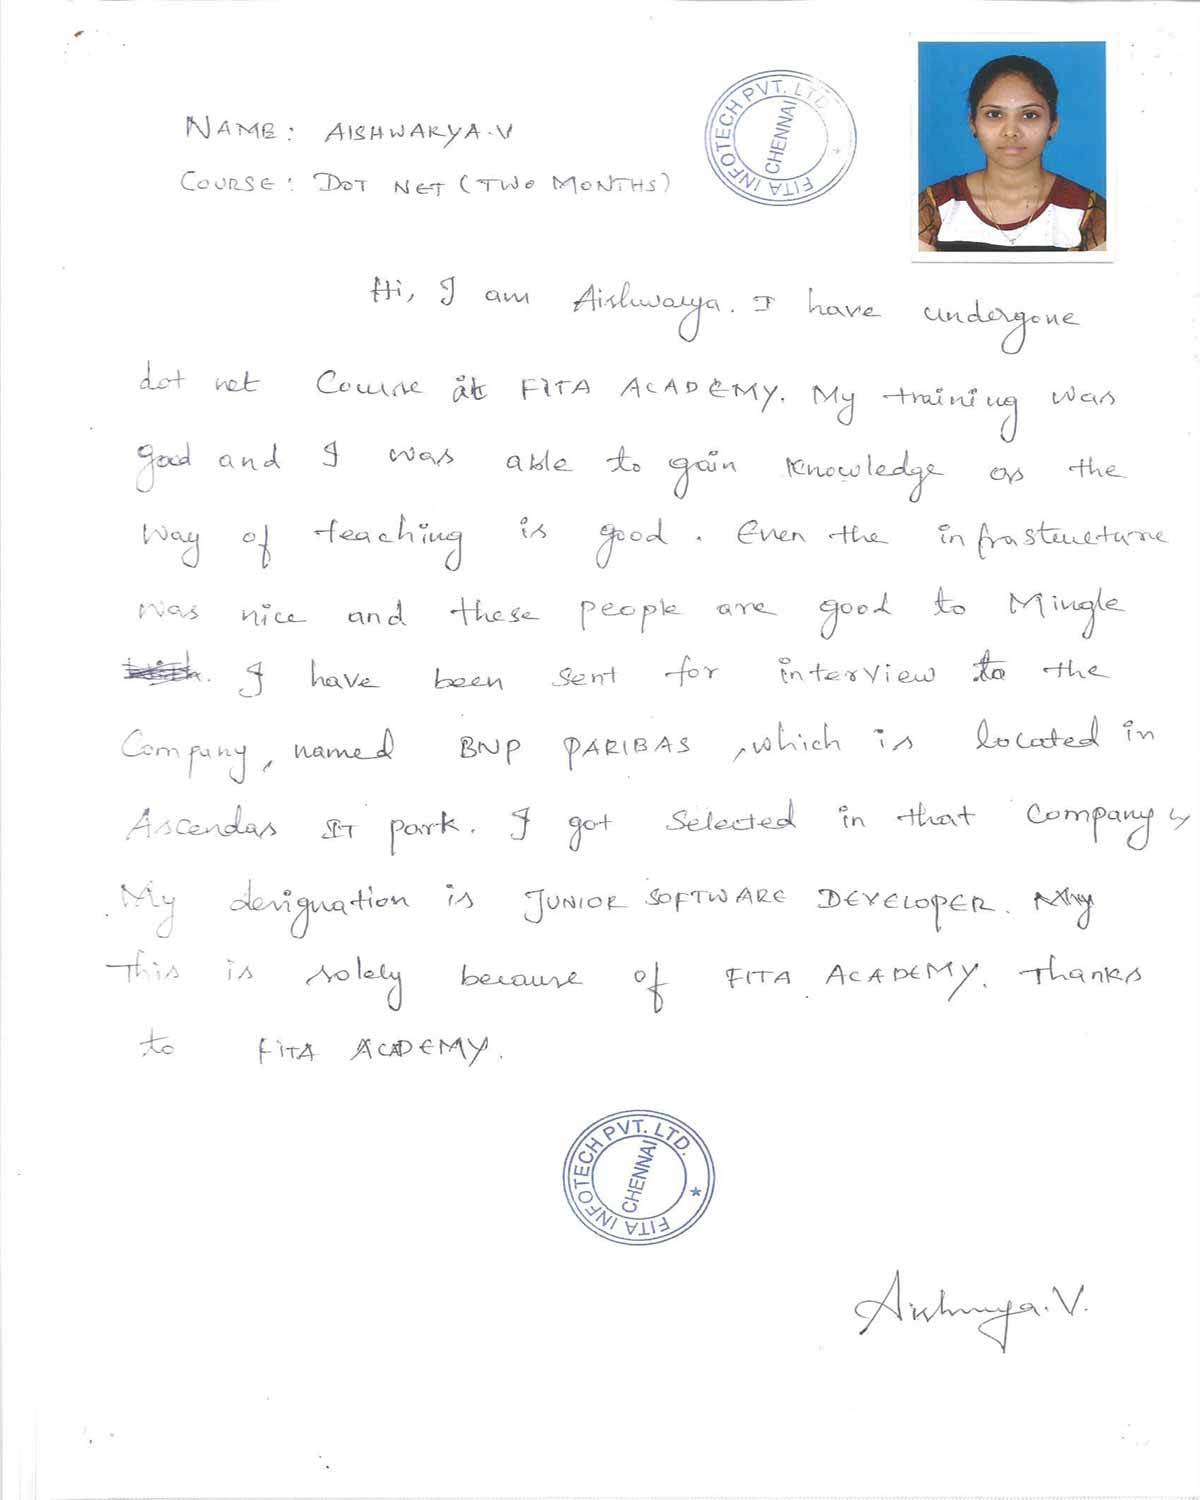 NAME: AISHWARYA.V
COURSE: DOT NET (TWO MONTHS)
FITA INFOTECH PVT. LTD.
CHENNAI
Hi, I am Aishwarya. I have undergone
dot net Course at FITA ACADEMY. My training was
good and I was able to gain knowledge as the
way of teaching is good. Even the infrastructure
was nice and these people are good to Mingle
with. I have been sent for interview to the
Company, named BNP PARIBAS, which is located in
Ascendas IT park. I got Selected in that Company
My designation is JUNIOR SOFTWARE DEVELOPER.
This is solely because of FITA ACADEMY. Thanks
to FITA ACADEMY.
FITA INFOTECH PVT. LTD. *
CHENNAI
Aishwarya.V.